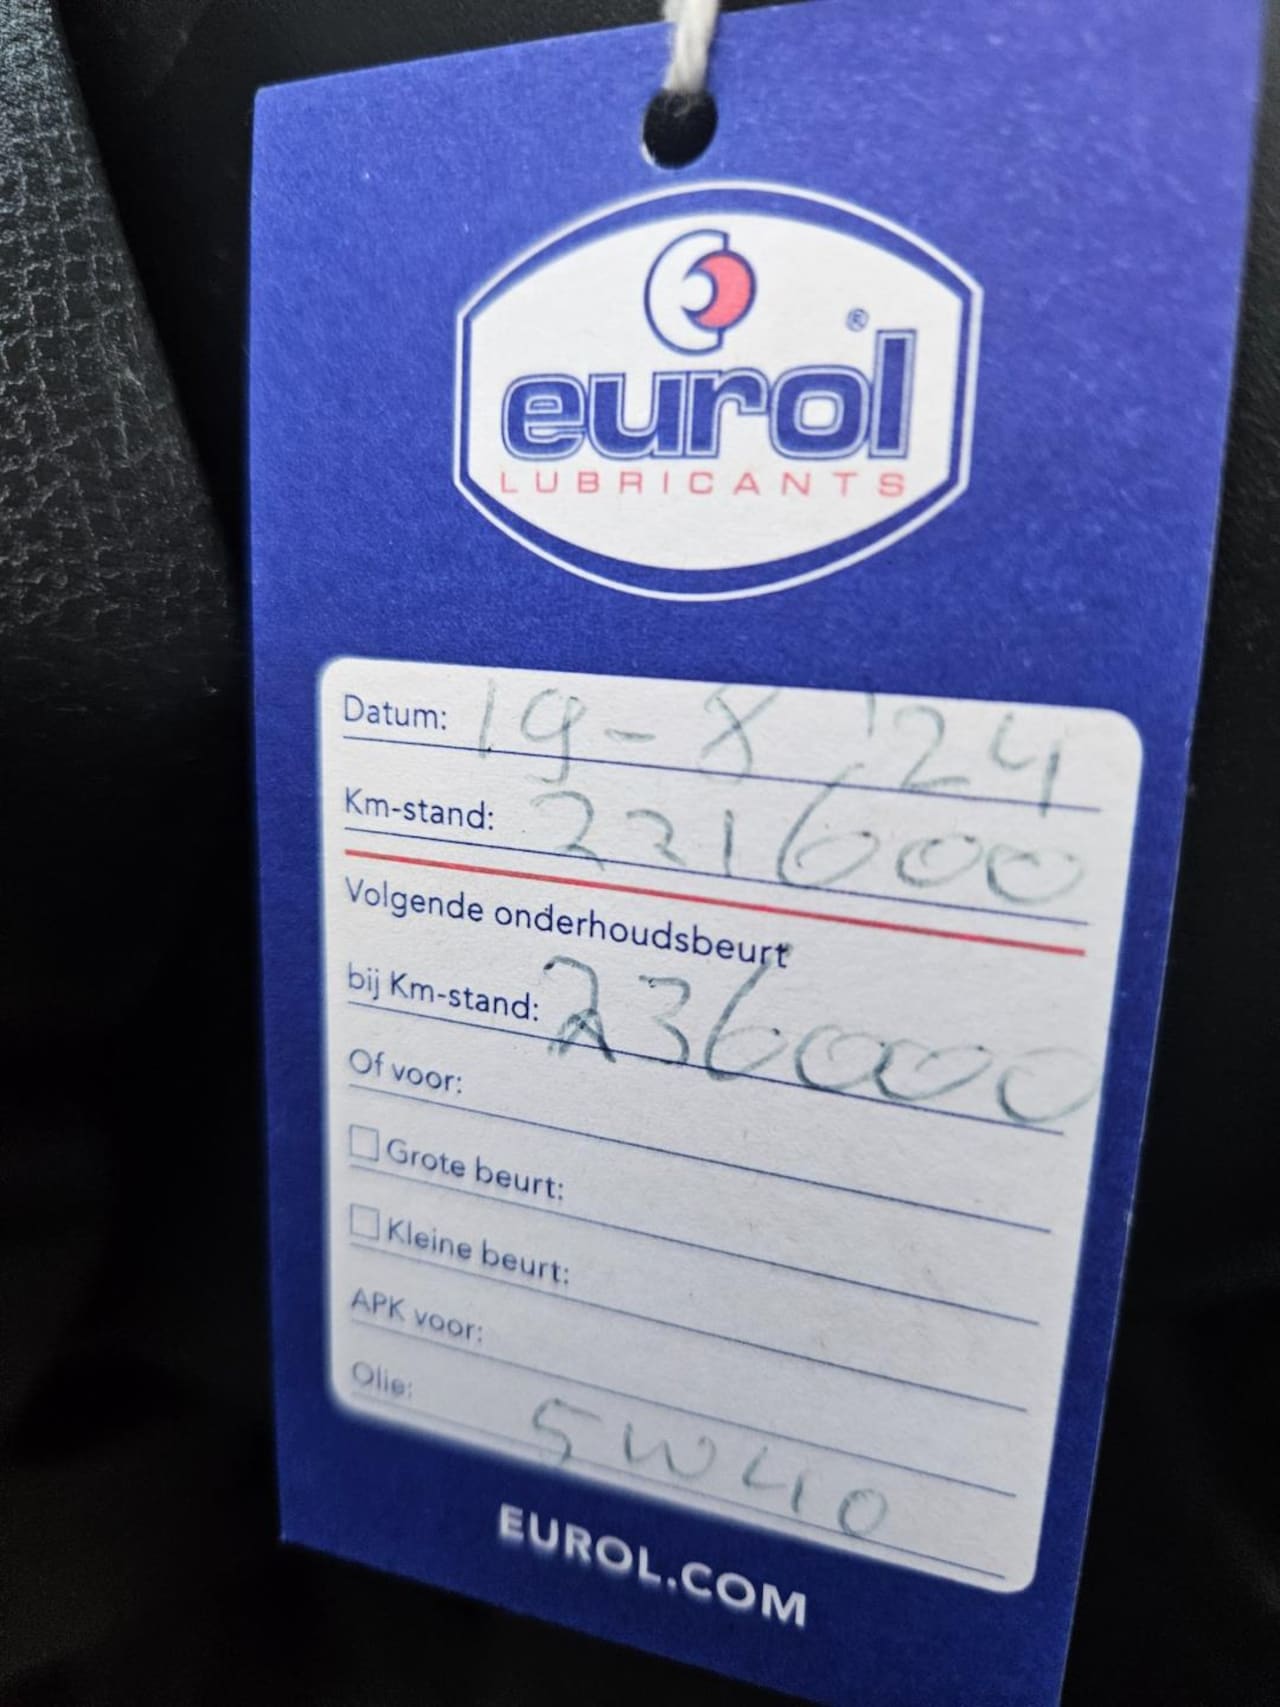 eurol®
LUBRICANTS
Datum: 19-8 '24
Km-stand: 221600
Volgende onderhoudsbeurt
bij Km-stand: 236000
Of voor:
Grote beurt:
Kleine beurt:
APK voor:
Olie: 5W40
EUROL.COM